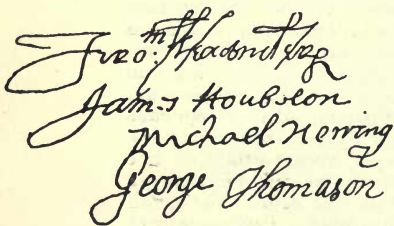 James Houbelon
Michael Herring
George Thomason